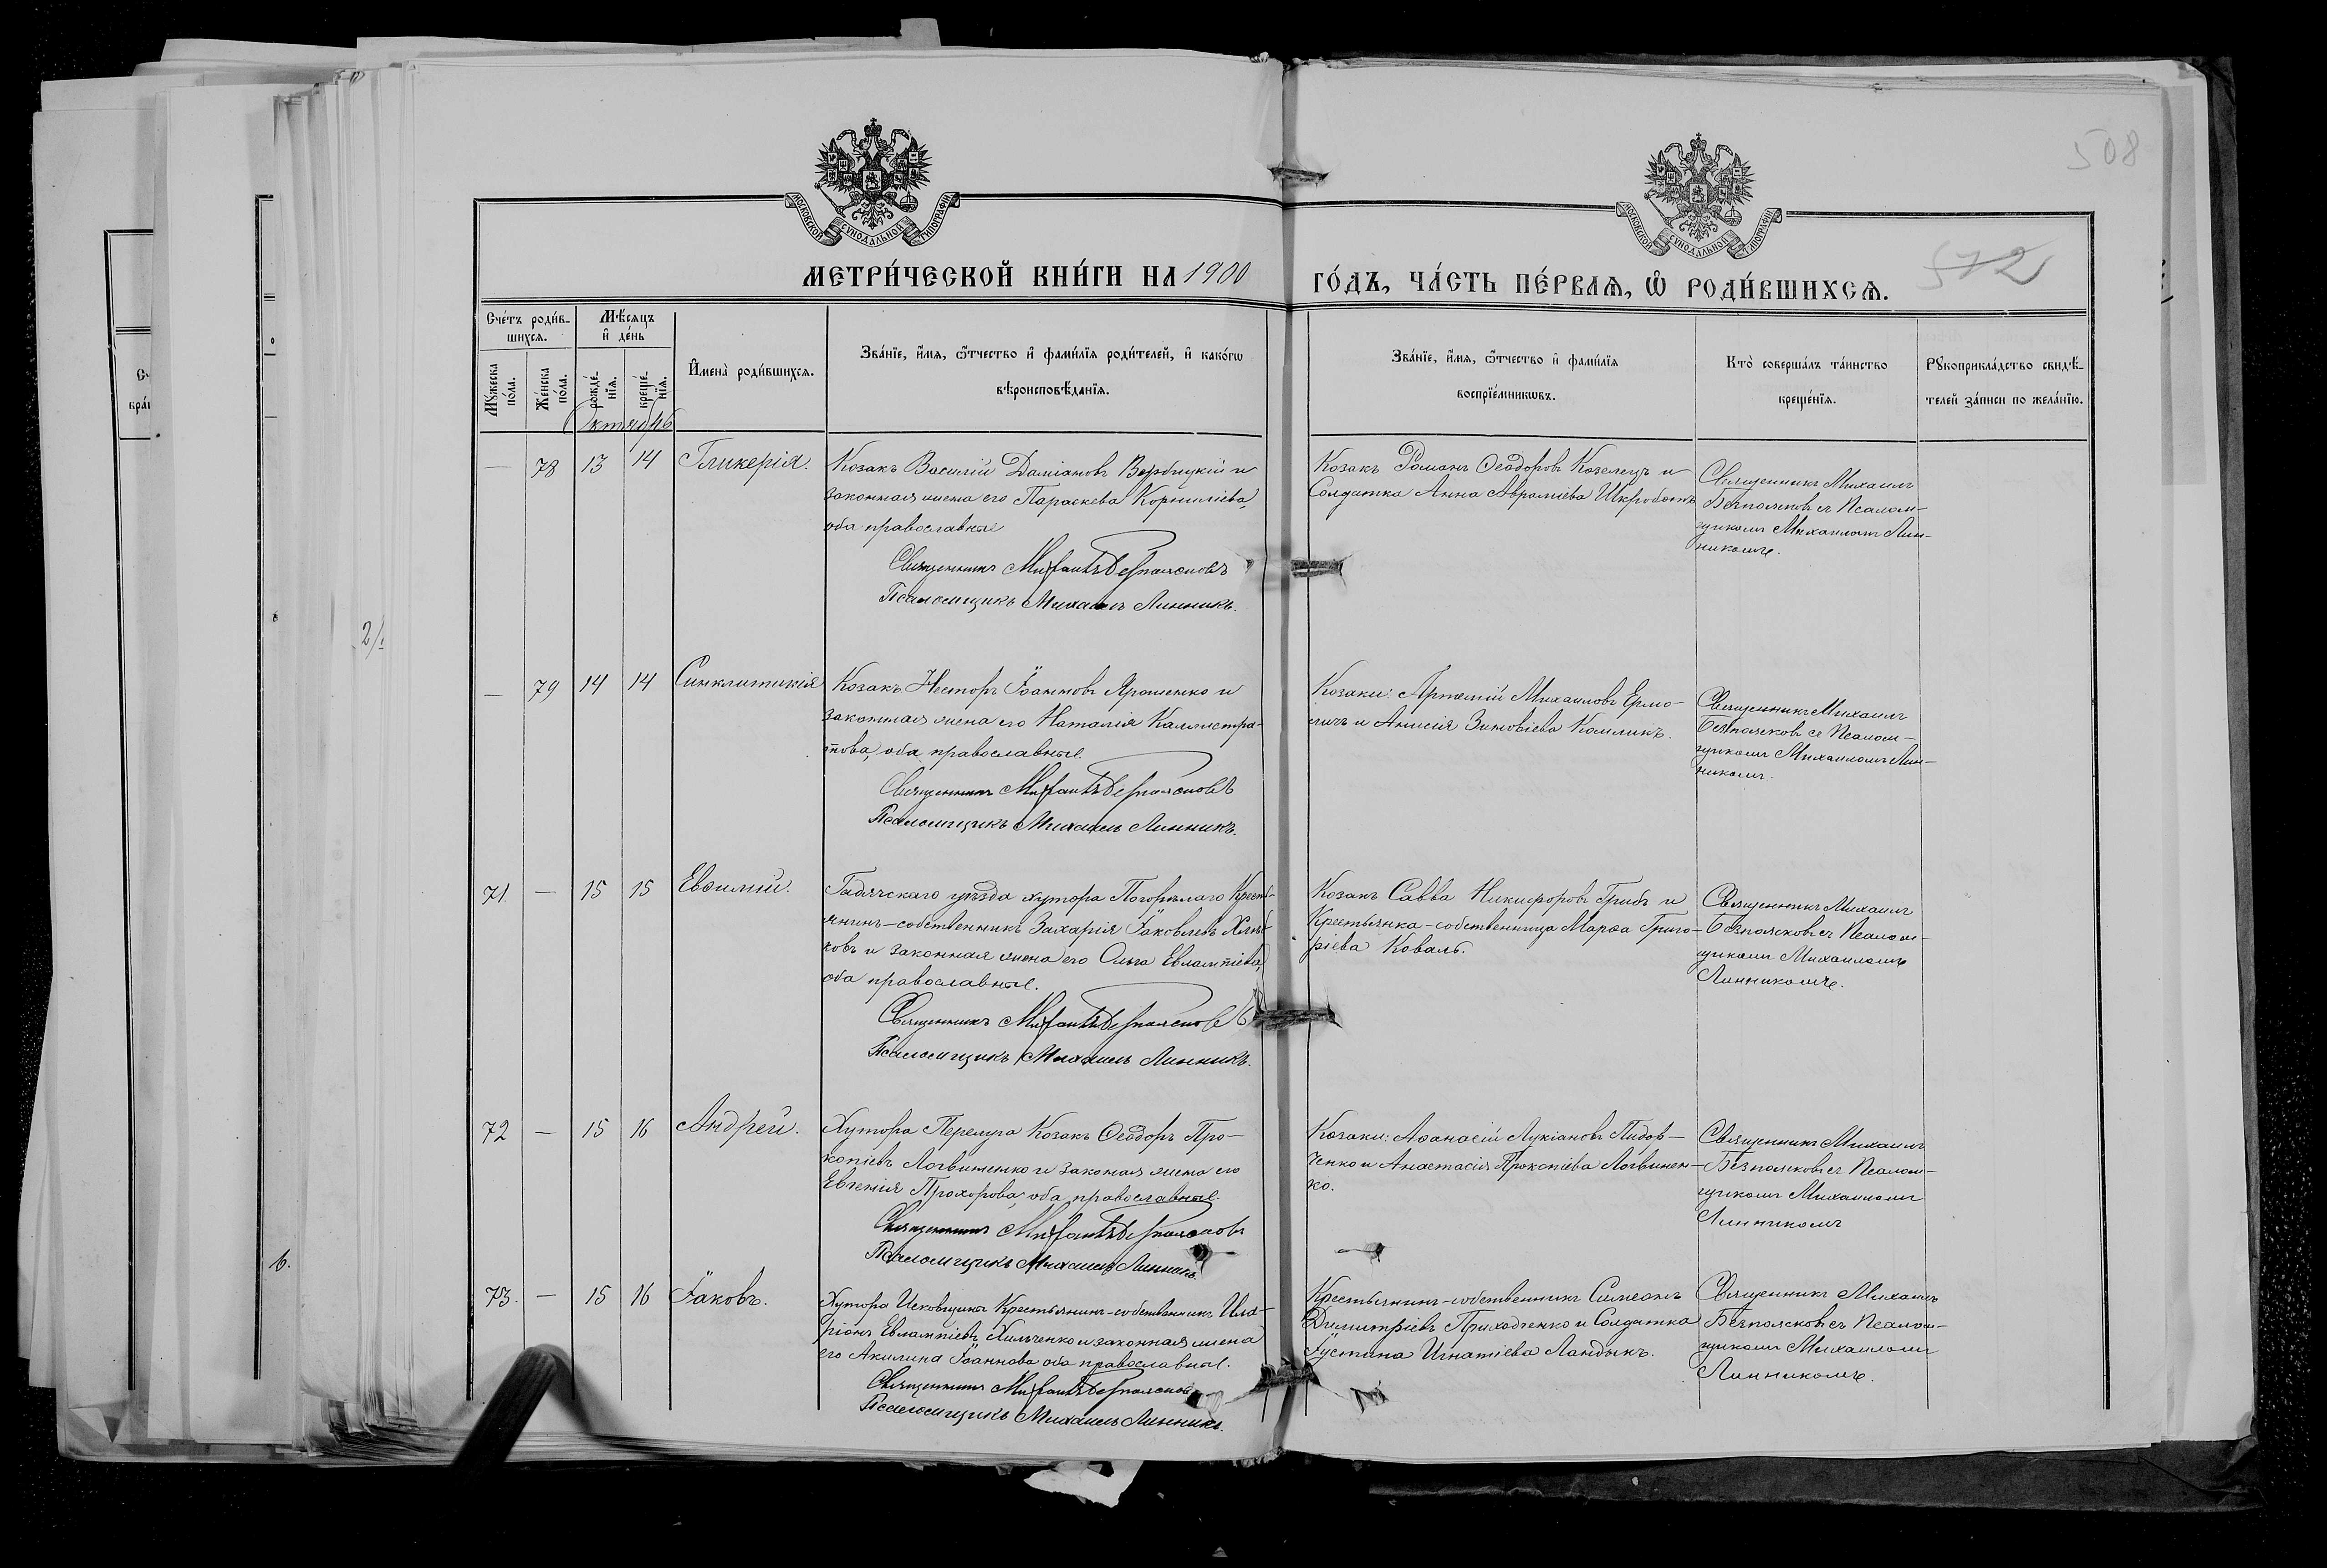 508
МОСКОВСКОЙ СѴНОДАЛЬНОЙ ТИПОГРАФІИ
МОСКОВСКОЙ СѴНОДАЛЬНОЙ ТИПОГРАФІИ
МЕТРИ́ЧЕСКОЙ КНИ́ГИ НА 1900
ГО́ДЪ, ЧА́СТЬ ПЕ́РВАѦ, Ѽ РОДИ́ВШИХСѦ.
572
Сче́тъ роди́в-
шихсѧ.
Мѣ́сѧцъ
и҆ де́нь
Мꙋ́жеска
по́ла.
Же́нска
по́ла.
рожде́-
нїѧ.
креще́-
нїѧ.
И҆мена̀ роди́вшихсѧ.
Зва́нїе, и҆́мѧ, ѻ҆́тчество и҆ фами́лїѧ роди́телей, и҆ како́гѡ
вѣроисповѣ́данїѧ.
Зва́нїе, и҆́мѧ, ѻ҆́тчество и҆ фами́лїѧ
воспрїе́мникѡвъ.
Кто̀ соверша́лъ та́инство
креще́нїѧ.
Рꙋкоприкла́дство свидѣ́-
телей за́писи по жела́нїю.
Октябрь
— 78 13 14 Гликерія.
Козакъ Василій Даміановъ Вербицкій и
законная жена его Параскева Корниліева,
оба православные
Священникъ Михаилъ Безпоясковъ
Псаломщикъ Михаилъ Линникъ.
Козакъ Романъ Ѳеодоровъ Козелецъ и
Солдатка Анна Авраміева Шкроботъ
Священникъ Михаилъ
Безпоясковъ съ Псалом-
щикомъ Михаиломъ Лин-
никомъ.
— 79 14 14 Синклитикія
Козакъ Несторъ Іоанновъ Ярошенко и
законная жена его Наталія Каллистра-
това, оба православные.
Священникъ Михаилъ Безпоясковъ
Псаломщикъ Михаилъ Линникъ.
Козаки: Артемій Михаиловъ Ермо-
личъ и Анисія Зиновіева Комликъ.
Священникъ Михаилъ
Безпоясковъ съ Псалом-
щикомъ Михаиломъ Лин-
никомъ.
71. — 15 15 Евѳимій.
Гадячскаго уѣзда хутора Погорѣлаго Кресть-
янинъ-собственникъ Захарія Іаковлевъ
и законная жена его Ольга Евлампіева,
оба православные.
Священникъ Михаилъ Безпоясковъ
Псаломщикъ Михаилъ Линникъ.
Козакъ Савва Никифоровъ Грибъ и
Крестьянка-собственница Марѳа Григо-
ріева Коваль.
Священникъ Михаилъ
Безпоясковъ съ Псалом-
щикомъ Михаиломъ
Линникомъ.
72 — 15 16 Андрей.
Хутора Перелуга Козакъ Ѳеодоръ Про-
копіевъ Логвиненко и законная жена его
Евгенія Прохорова, оба православные.
Священникъ Михаилъ Безпоясковъ
Псаломщикъ Михаилъ Линникъ.
Козаки: Аѳанасій Лукіановъ Пидов-
ченко и Анастасія Прокопіева Логвинен-
ко.
Священникъ Михаилъ
Безпоясковъ съ Псалом-
щикомъ Михаиломъ
Линникомъ
73. — 15 16 Іаковъ.
Хутора Исковщины Крестьянинъ-собственникъ Ила-
ріонъ Евлампіевъ Хильченко и законная жена
его Акилина Іоаннова оба православные.
Священникъ Михаилъ Безпоясковъ
Псаломщикъ Михаилъ Линникъ.
Крестьянинъ-собственникъ Симеонъ
Димитріевъ Приходченко и Солдатка
Іустина Игнатіева Ландыкъ.
Священникъ Михаилъ
Безпоясковъ съ Псалом-
щикомъ Михаиломъ
Линникомъ.